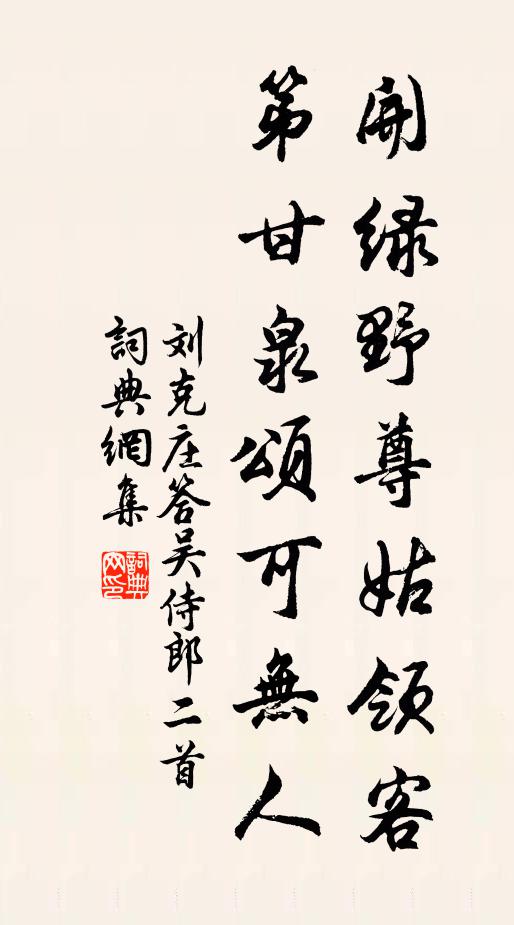 開緑野尊姑領客
第甘泉頌可無人
刘克庄答吴侍郎二首
詞典網集
詞典網印